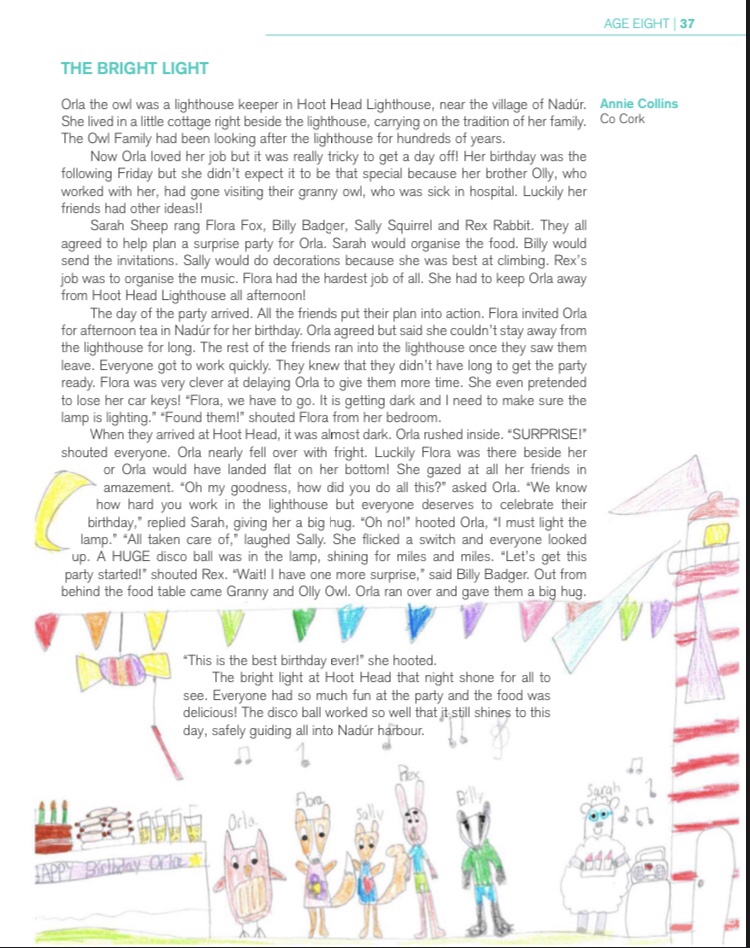 AGE EIGHT | 37
THE BRIGHT LIGHT
Orla the owl was a lighthouse keeper in Hoot Head Lighthouse, near the village of Nadúr.
She lived in a little cottage right beside the lighthouse, carrying on the tradition of her family.
The Owl Family had been looking after the lighthouse for hundreds of years.
Now Orla loved her job but it was really tricky to get a day off! Her birthday was the
following Friday but she didn't expect it to be that special because her brother Olly, who
worked with her, had gone visiting their granny owl, who was sick in hospital. Luckily her
friends had other ideas!!
Sarah Sheep rang Flora Fox, Billy Badger, Sally Squirrel and Rex Rabbit. They all
agreed to help plan a surprise party for Orla. Sarah would organise the food. Billy would
send the invitations. Sally would do decorations because she was best at climbing. Rex's
job was to organise the music. Flora had the hardest job of all. She had to keep Orla away
from Hoot Head Lighthouse all afternoon!
The day of the party arrived. All the friends put their plan into action. Flora invited Orla
for afternoon tea in Nadúr for her birthday. Orla agreed but said she couldn't stay away from
the lighthouse for long. The rest of the friends ran into the lighthouse once they saw them
leave. Everyone got to work quickly. They knew that they didn't have long to get the party
ready. Flora was very clever at delaying Orla to give them more time. She even pretended
to lose her car keys! “Flora, we have to go. It is getting dark and I need to make sure the
lamp is lighting.” “Found them!” shouted Flora from her bedroom.
When they arrived at Hoot Head, it was almost dark. Orla rushed inside. “SURPRISE!”
shouted everyone. Orla nearly fell over with fright. Luckily Flora was there beside her
or Orla would have landed flat on her bottom! She gazed at all her friends in
amazement. “Oh my goodness, how did you do all this?” asked Orla. “We know
how hard you work in the lighthouse but everyone deserves to celebrate their
birthday,” replied Sarah, giving her a big hug. “Oh no!” hooted Orla, “I must light the
lamp.” “All taken care of,” laughed Sally. She flicked a switch and everyone looked
up. A HUGE disco ball was in the lamp, shining for miles and miles. “Let's get this
party started!” shouted Rex. “Wait! I have one more surprise,” said Billy Badger. Out from
behind the food table came Granny and Olly Owl. Orla ran over and gave them a big hug.
“This is the best birthday ever!” she hooted.
The bright light at Hoot Head that night shone for all to
see. Everyone had so much fun at the party and the food was
delicious! The disco ball worked so well that it still shines to this
day, safely guiding all into Nadúr harbour.
Annie Collins
Co Cork
Orla
Flora
Sally
Rex
Billy
Sarah
HAPPY Birthday Orla